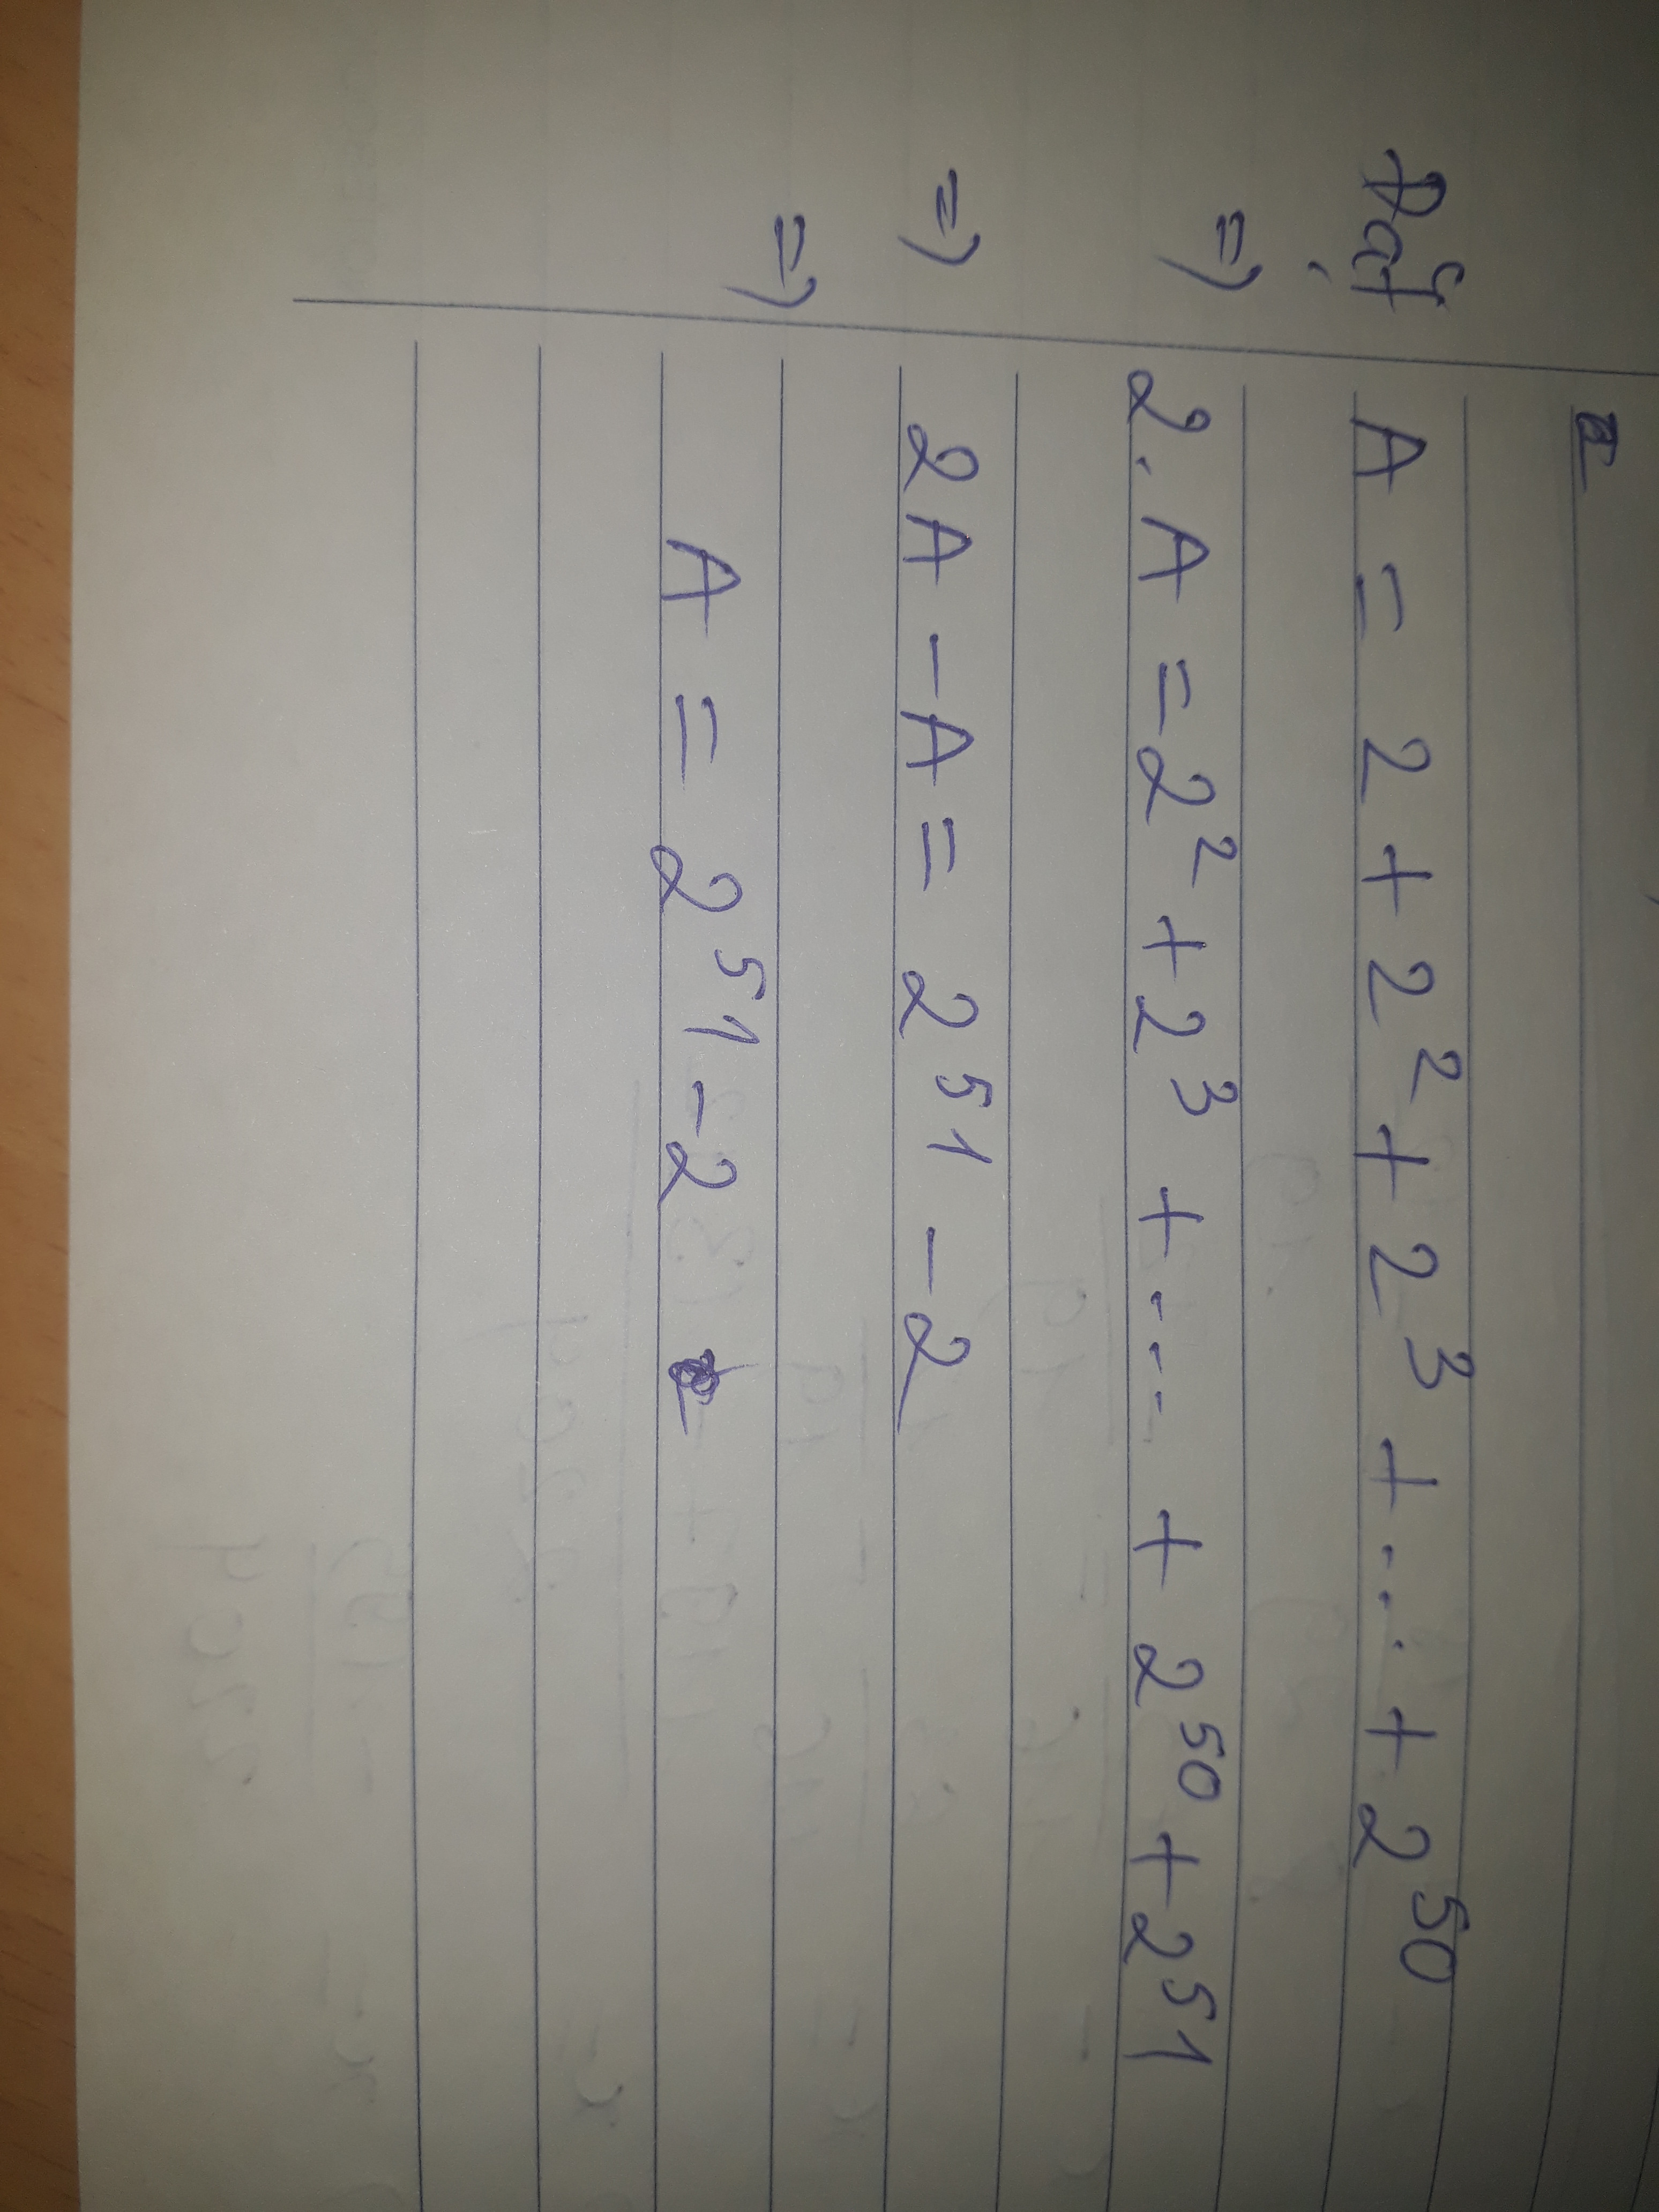 Đặt A = 2 + 2² + 2³ + ... + 2⁵⁰
=) 2. A = 2² + 2³ + ... + 2⁵⁰ + 2⁵¹
=) 2A - A = 2⁵¹ - 2
=) A = 2⁵¹ - 2